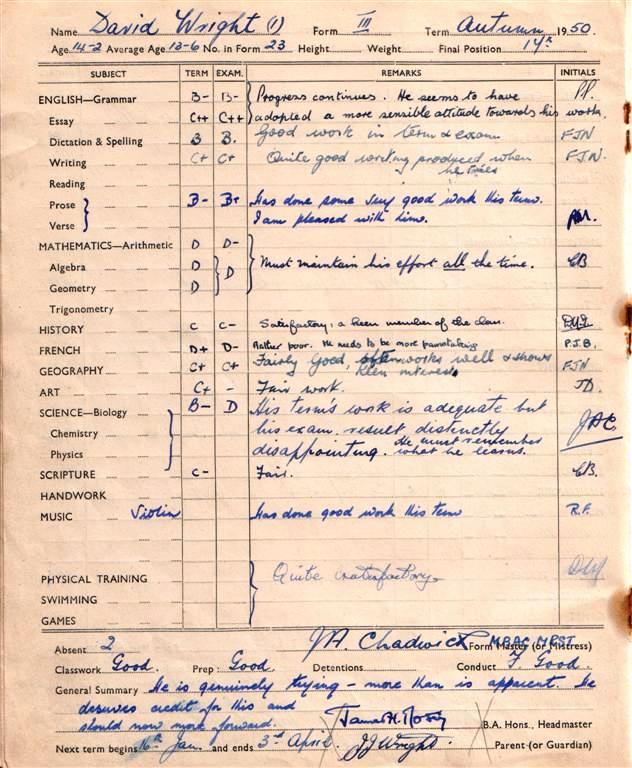 Name David Wright (1) Form III Term Autumn 1950
Age 14-2 Average Age 13-6 No. in Form 23 Height Weight Final Position 14th
SUBJECT TERM EXAM. REMARKS INITIALS
ENGLISH—Grammar B- B- Progress continues. He seems to have P.P.
Essay C++ C++ adopted a more sensible attitude towards his work.
Dictation & Spelling B B. Good work in term & exam FJN
Writing C+ C+ Quite good writing produced when FJN.
he tries
Reading
Prose B- B+ Has done some very good work this term.
Verse I am pleased with him.
MATHEMATICS—Arithmetic D D-
Algebra D D Must maintain his effort all the time. CB
Geometry D
Trigonometry
HISTORY C C- Satisfactory: a keen member of the class.
FRENCH D+ D- Rather poor. He needs to be more painstaking P.J.B.
GEOGRAPHY C+ C+ Fairly Good, often works well & shows FJN
keen interest.
ART C+ - Fair work. JD.
SCIENCE—Biology B- D His term's work is adequate but
Chemistry his exam. result distinctly JAC
Physics disappointing. He must remember
what he learns.
SCRIPTURE C- Fair. CB.
HANDWORK
MUSIC Violin Has done good work this term R.F.
PHYSICAL TRAINING Quite satisfactory.
SWIMMING
GAMES
Absent 2 J.A. Chadwick Form Master (or Mistress)
Classwork Good. Prep: Good. Detentions Conduct F. Good.
General Summary He is genuinely trying - more than is apparent. He
deserves credit for this and
should now move forward. B.A. Hons., Headmaster
Next term begins 16th Jan. and ends 3rd April. JJ Wright. Parent (or Guardian)